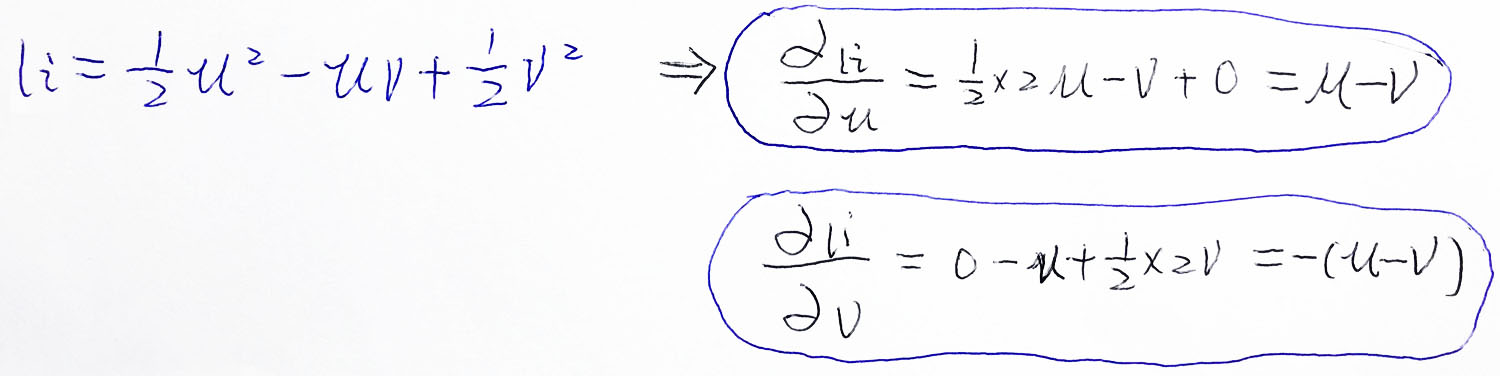 li = 1/2 u² - uv + 1/2 v² ⇒ ∂li/∂u = 1/2 × 2u - v + 0 = u - v
∂li/∂v = 0 - u + 1/2 × 2v = -(u - v)